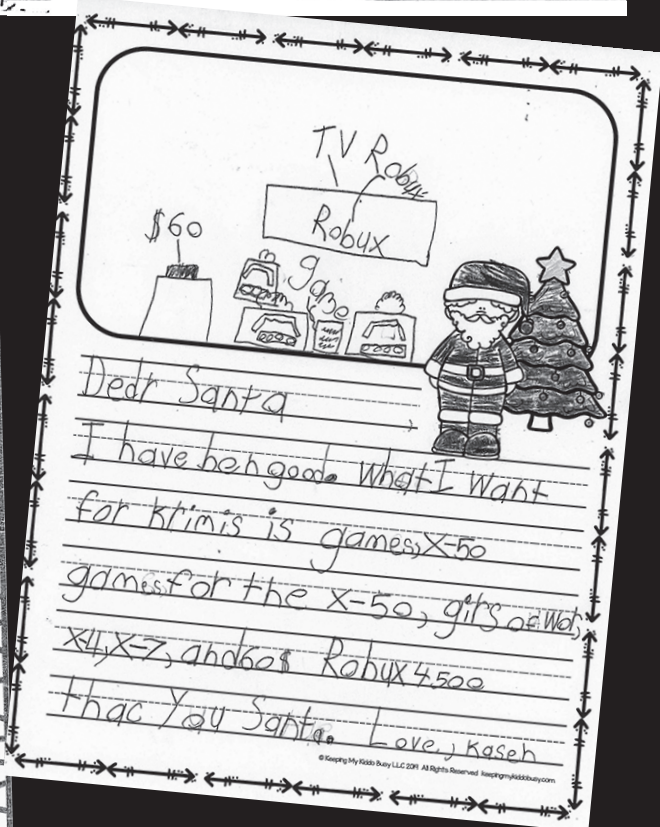 TV Robux
$60
Robux
Dedr Santa
I have hen good. What I Want
for krimis is games, X-50
games for the X-50, gits of wor,
X-4, X-7, and 60$ Robux 4.500
thac You Santa. Love, Kaseh
© Keeping My Kiddo Busy LLC 2019 All Rights Reserved keepingmykiddobusy.com